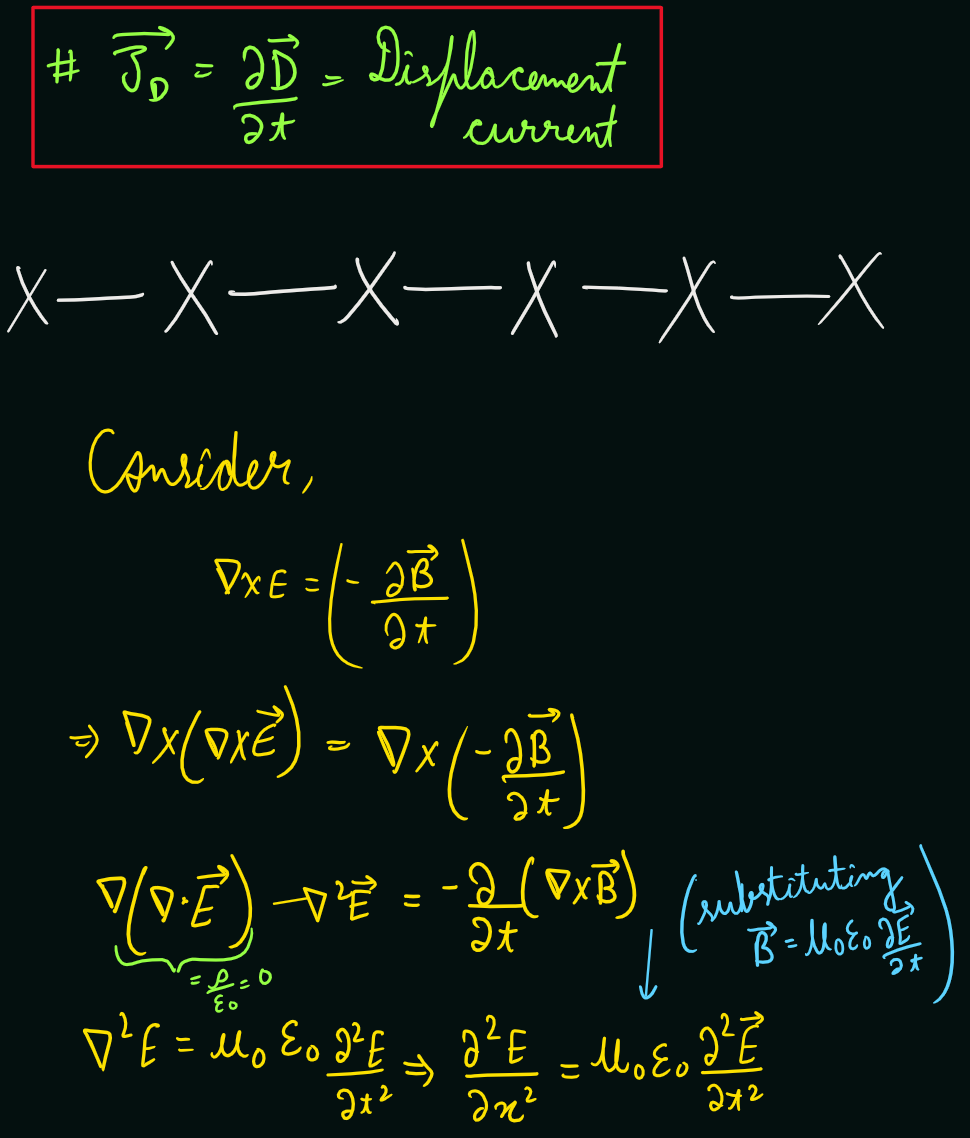 # J⃗_D = ∂D⃗/∂t = Displacement
current
X — X — X — X — X — X
Consider,
∇×E = (-∂B⃗/∂t)
⇒ ∇×(∇×E⃗) = ∇×(-∂B⃗/∂t)
∇(∇·E⃗) - ∇²E⃗ = -∂/∂t (∇×B⃗)
(substituting
B⃗ = μ₀ε₀ ∂E⃗/∂t)
= ρ/ε₀ = 0
∇²E = μ₀ε₀ ∂²E/∂t² ⇒ ∂²E/∂x² = μ₀ε₀ ∂²E⃗/∂t²